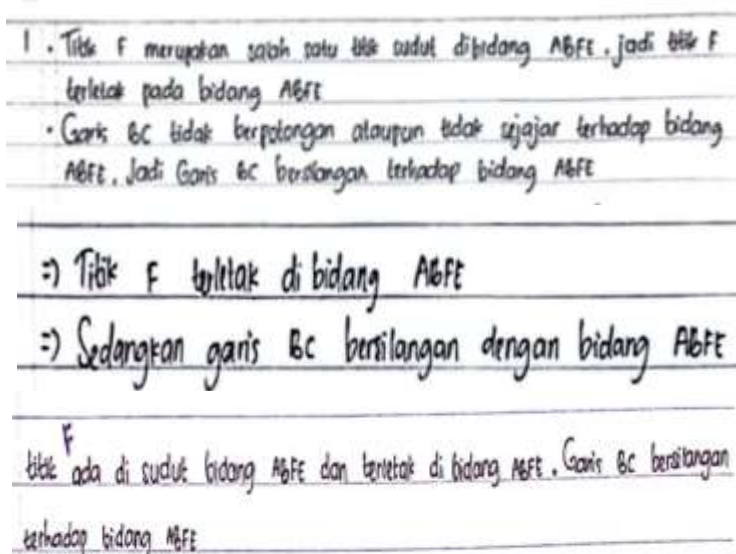 1. Titik F merupakan salah satu titik sudut dibidang ABFE. jadi titik F
terletak pada bidang ABFE
· Garis BC tidak berpotongan ataupun tidak sejajar terhadap bidang
ABFE. Jadi Garis BC bersilangan terhadap bidang ABFE
=) Titik F terletak di bidang ABFE
=) Sedangkan garis BC bersilangan dengan bidang ABFE
titik F ada di sudut bidang ABFE dan terletak di bidang ABFE. Garis BC bersilangan
terhadap bidang ABFE